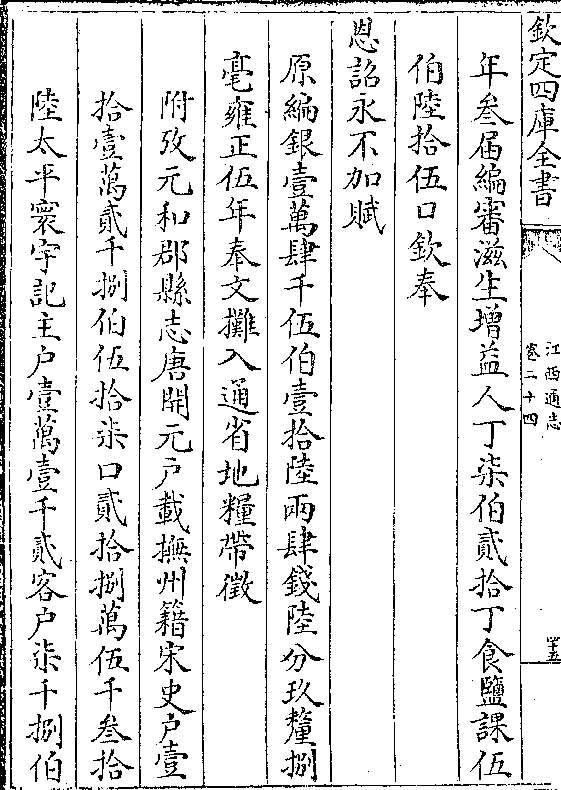 欽定四庫全書
江西通志
卷二十四
四十五
年叁届編審滋生增益人丁柒伯貳拾丁食鹽課伍
伯陸拾伍口欽奉
恩詔永不加賦
原編銀壹萬肆千伍伯壹拾陸兩肆錢陸分玖釐捌
毫雍正伍年奉文攤入通省地糧帶徵
附攷元和郡縣志唐開元户載撫州籍宋史户壹
拾壹萬貳千捌伯伍拾柒口貳拾捌萬伍千叁拾
陸太平寰宇記主户壹萬壹千貳客户柒千捌伯